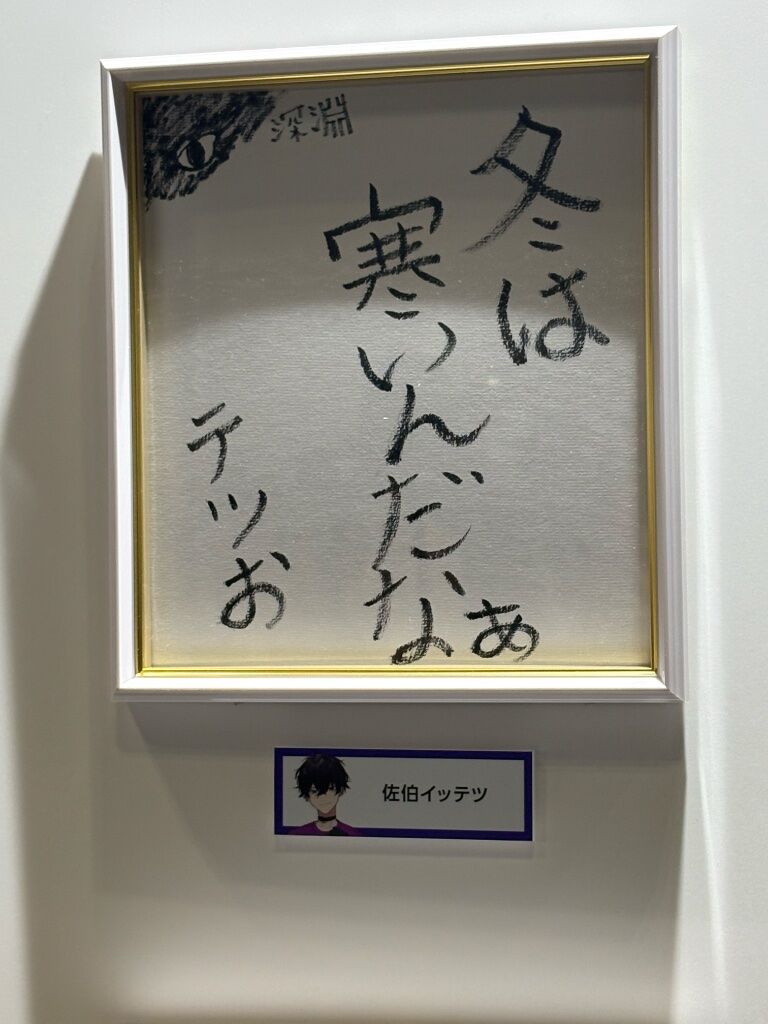 冬は
寒いんだなぁ
テツお
深淵
佐伯イッテツ